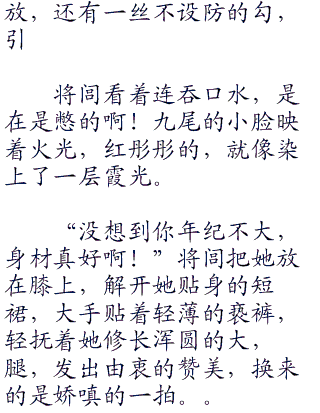 放，还有一丝不设防的勾，
引
将闾看着连吞口水，是
在是憋的啊！九尾的小脸映
着火光，红彤彤的，就像染
上了一层霞光。
“没想到你年纪不大，
身材真好啊！”将闾把她放
在膝上，解开她贴身的短
裙，大手贴着轻薄的亵裤，
轻抚着她修长浑圆的大，
腿，发出由衷的赞美，换来
的是娇嗔的一拍。。